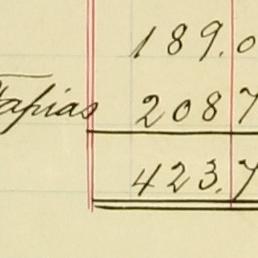 189.0
Tapias 2087
423.7